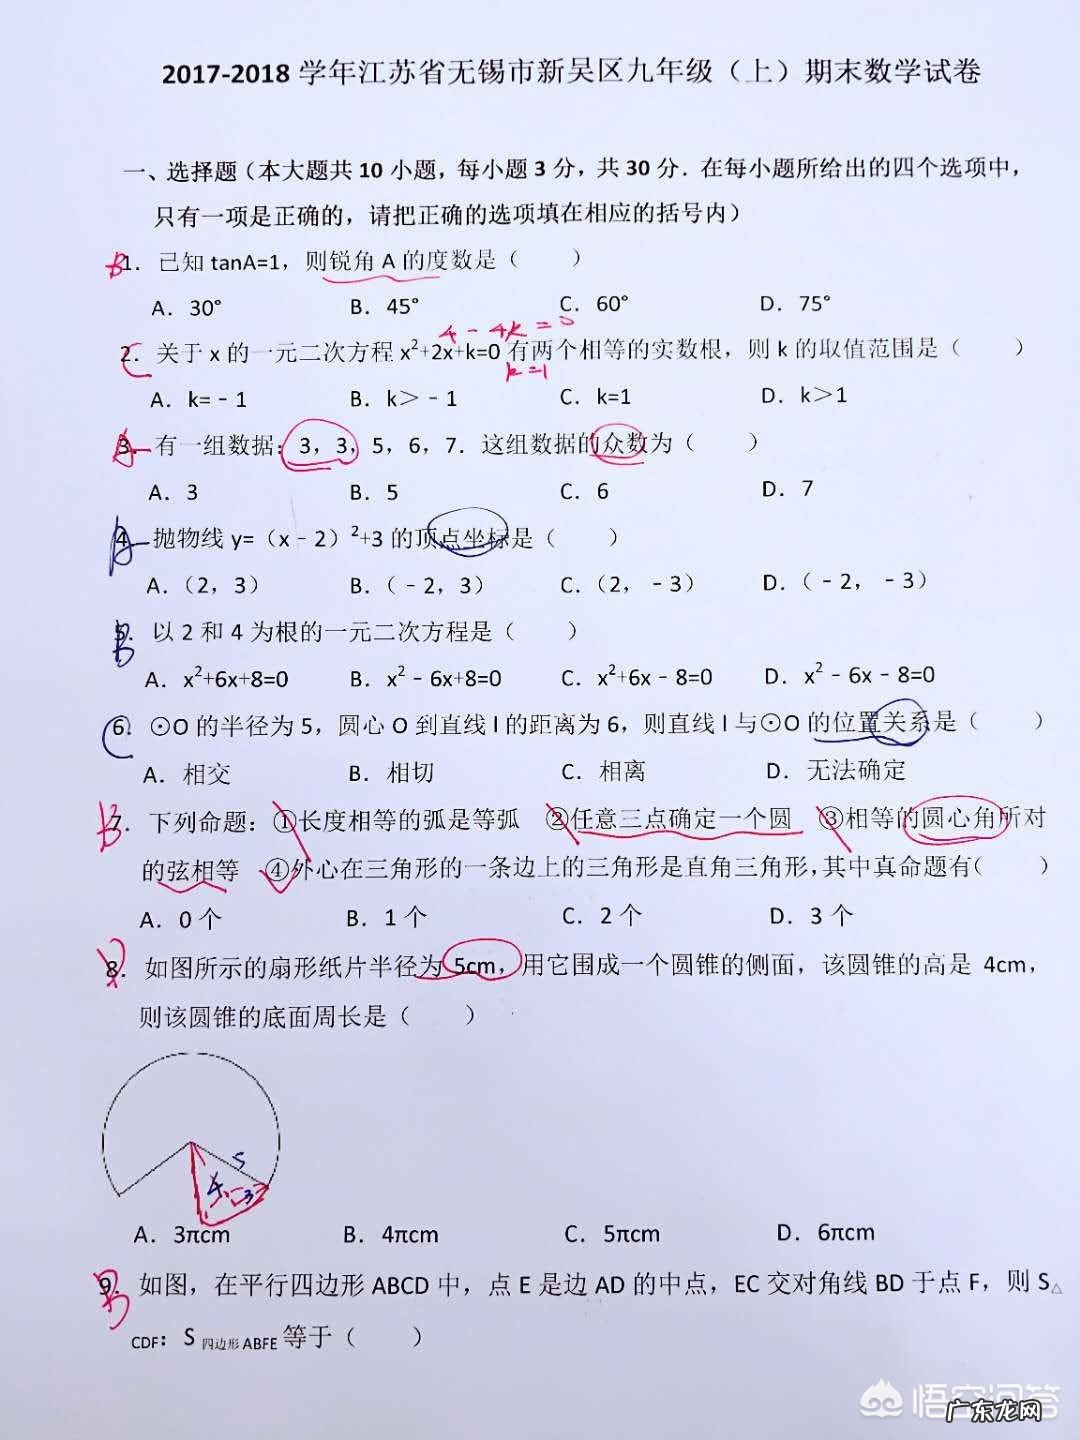 2017-2018 学年江苏省无锡市新吴区九年级（上）期末数学试卷
一、选择题（本大题共 10 小题，每小题 3 分，共 30 分．在每小题所给出的四个选项中，
只有一项是正确的，请把正确的选项填在相应的括号内）
B 1．已知 tanA=1，则锐角 A 的度数是（　　）
A．30°　B．45°　C．60°　D．75°
4 - 4k = 0
C 2．关于 x 的一元二次方程 x²+2x+k=0 有两个相等的实数根，则 k 的取值范围是（　　）
k=1
A．k=﹣1　B．k＞﹣1　C．k=1　D．k＞1
A 3．有一组数据：3，3，5，6，7．这组数据的众数为（　　）
A．3　B．5　C．6　D．7
A 4．抛物线 y=（x﹣2）²+3 的顶点坐标是（　　）
A．（2，3）　B．（﹣2，3）　C．（2，﹣3）　D．（﹣2，﹣3）
B 5．以 2 和 4 为根的一元二次方程是（　　）
A．x²+6x+8=0　B．x²﹣6x+8=0　C．x²+6x﹣8=0　D．x²﹣6x﹣8=0
C 6．⊙O 的半径为 5，圆心 O 到直线 l 的距离为 6，则直线 l 与⊙O 的位置关系是（　　）
A．相交　B．相切　C．相离　D．无法确定
B 7．下列命题：①长度相等的弧是等弧　②任意三点确定一个圆　③相等的圆心角所对
的弦相等　④外心在三角形的一条边上的三角形是直角三角形，其中真命题有（　　）
A．0 个　B．1 个　C．2 个　D．3 个
8．如图所示的扇形纸片半径为 5cm，用它围成一个圆锥的侧面，该圆锥的高是 4cm，
则该圆锥的底面周长是（　　）
5
4
3
A．3πcm　B．4πcm　C．5πcm　D．6πcm
B 9．如图，在平行四边形 ABCD 中，点 E 是边 AD 的中点，EC 交对角线 BD 于点 F，则 S△
CDF：S 四边形 ABFE 等于（　　）
悟空问答
广东龙网